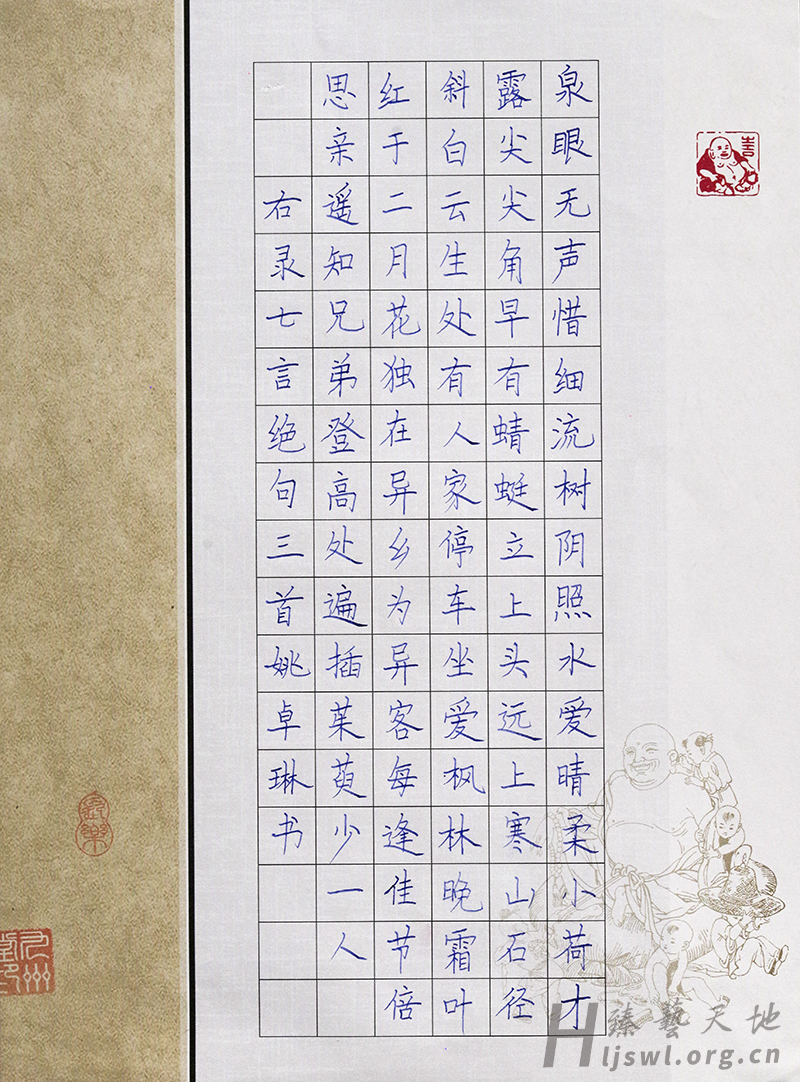 泉眼无声惜细流树阴照水爱晴柔小荷才
露尖尖角早有蜻蜓立上头远上寒山石径
斜白云生处有人家停车坐爱枫林晚霜叶
红于二月花独在异乡为异客每逢佳节倍
思亲遥知兄弟登高处遍插茱萸少一人
右录七言绝句三首姚卓琳书
善
臻艺天地
Hljswl.org.cn